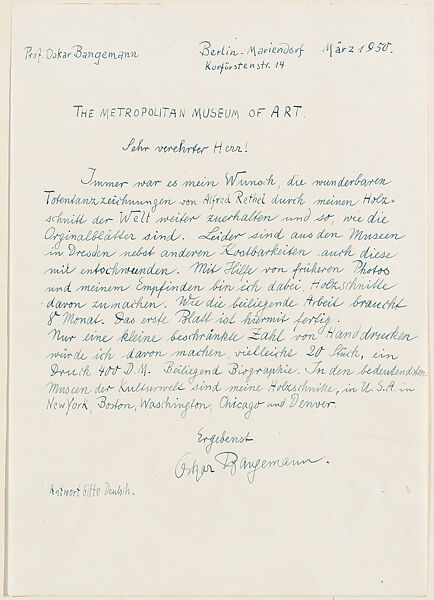 Prof. Oskar Bangemann
Berlin-Mariendorf März 1950.
Kurfürstenstr. 14
THE METROPOLITAN MUSEUM OF ART.
Sehr verehrter Herr!
Immer war es mein Wunsch, die wunderbaren
Totentanzzeichnungen von Alfred Rethel durch meinen Holz=
schnitt der Welt weiter zuerhalten und so, wie die
Orginalblätter sind. Leider sind aus den Museen
in Dresden nebst anderen Kostbarkeiten auch diese
mit entschwunden. Mit Hilfe von früheren Photos
und meinem Empfinden bin ich dabei, Holzschnitte
davon zumachen. Wie die beiliegende Arbeit braucht
8 Monat. Das erste Blatt ist hiermit fertig.
Nur eine kleine beschränkte Zahl von Handdrucken
würde ich davon machen, vielleicht 20 Stück, ein
Druck 400 D.M. Beiliegend Biographie. In den bedeutendsten
Museen der Kulturwelt sind meine Holzschnitte, in U.S.A. in
New York, Boston, Waschington, Chicago und Denver.
Ergebenst
Oskar Bangemann.
Antwort bitte Deutsch.